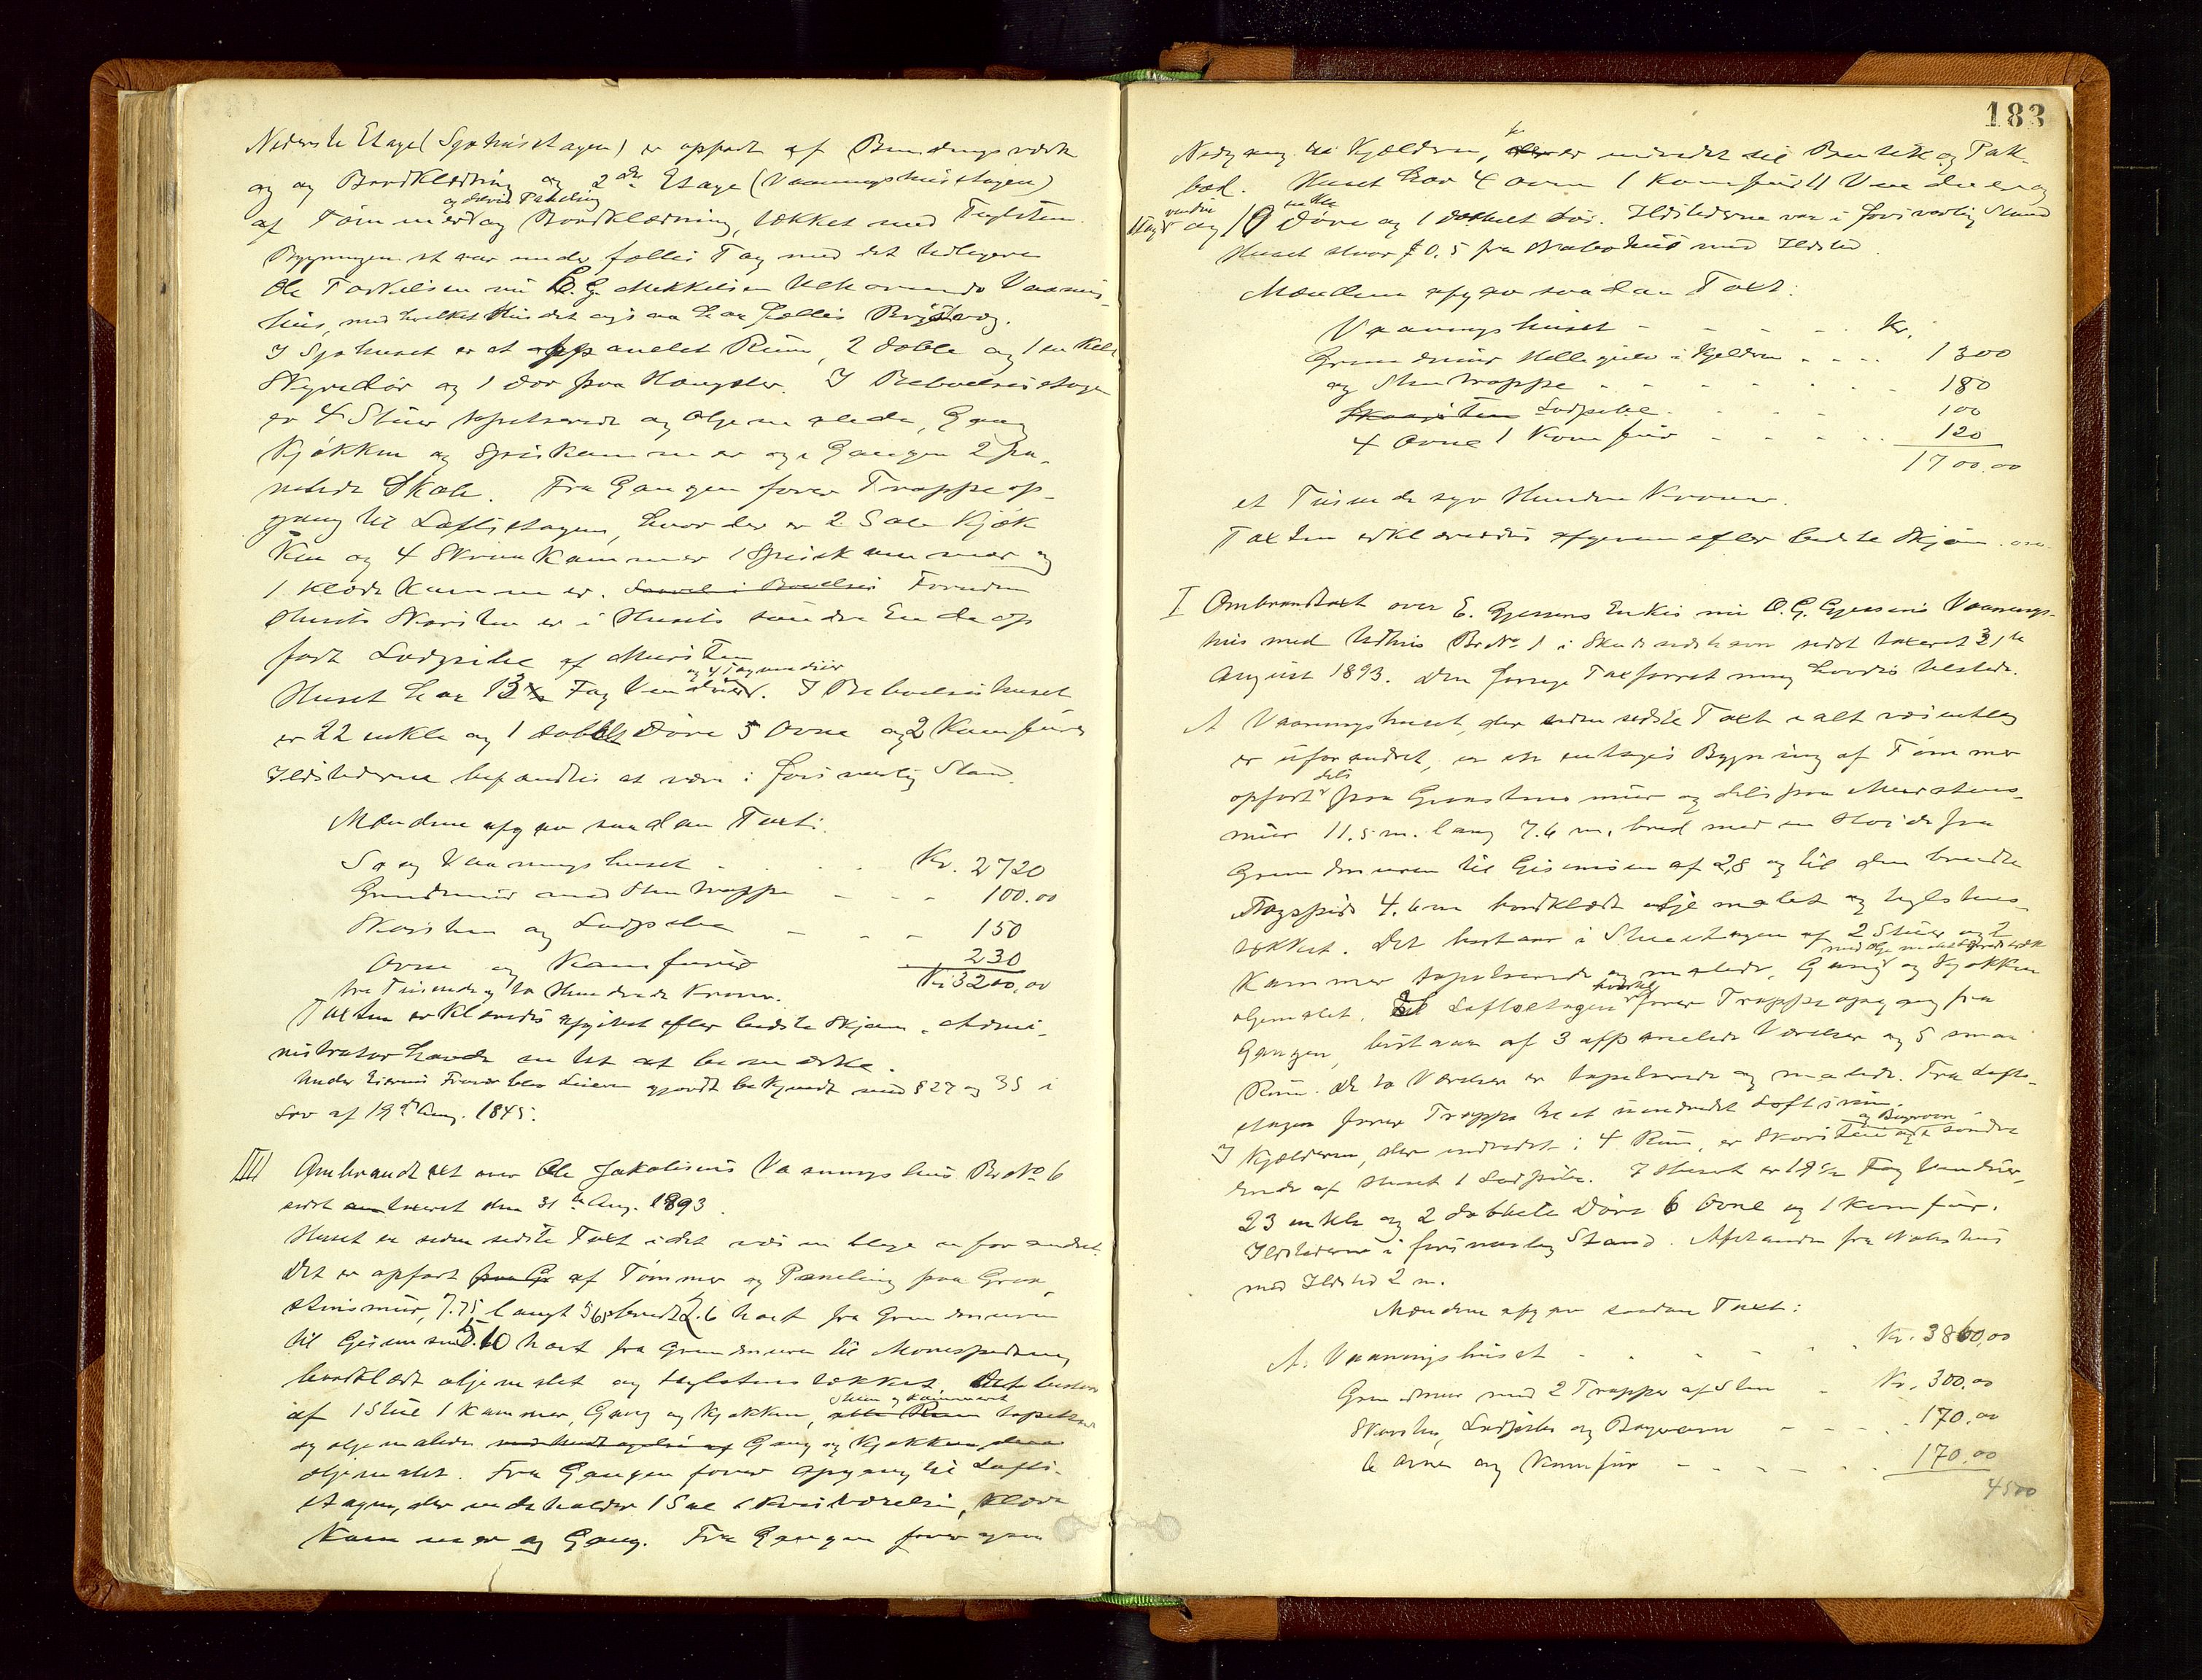 Nederste Etage (Sjøhusetagen) er opført af Bindingsværk
og og Bordklædning og 2den Etage (Vaaningshusetagen)
og delvis Paneling
af Tømmer og Bordklædning, tækket med Teglsten.
Bygningen st var under fælles Tag med det tidligere
Ole Torkelsen nu O. G. Mikkelsen tilhørende Vaanings-
hus, med hvilket Huset ogsaa har fælles Brystvæg.
I Sjøhuset er et afpanelet Rum, 2 doble og 1 enkelt
Skyvedør og 1 Dør paa Hængsler. I Beboelsesetagen
er 4 Stuer tapetserede og oljemalede, Gang
Kjøkken og Spiskammer og i Gangen 2 pa-
nelede Skabe. Fra Gangen fører Trappeop-
gang til Loftsetagen, hvor der er 2 Sale Kjøk
ken og 4 Skraakammer 1 Spiskammer og
1 Klædekammer. Foruden
Husets Skorsten er i Husets søndre Ende op
ført Lodpibe af Mursten
og 4 Tagvinduer
Huset har 13 Fag Vinduer. I Beboelseshuset
er 22 enkle og 1 dobbelt Døre 5 Ovne og 2 Komfurer
Ildstederne befandtes at være i forsvarlig Stand.
Mændene afgav saadan Taxt:
Sø og Vaaningshuset - - - Kr. 2720
Grundmur med Stentrappe - - - 100.00
Skorsten og Lodpibe - - - 150
Ovne og Komfurer 230
Kr. 3200,00
tre Tusinde og to Hundrede Kroner.
Taxten erklæredes afgivet efter bedste Skjøn. Admi-
nistrator havde intet at bemærke.
Under Eierens Fravær blev Leieren gjordt bekjendt med § 27 og 35 i
Lov af 19de Aug. 1845.
III Ombrandtaxt over Ole Jakobsens Vaaningshus Br. No 6
sidst taxeret den 31te Aug. 1893.
Huset er siden sidste Taxt i det væsentlige uforandret.
Det er opført paa Gr af Tømmer og Paneling paa Graa-
stensmur, 7.75 langt 5.65 bredt 2.6 høit fra Grundmuren
til Gesimsen høit fra Grundmuren til Mønespidsen,
bordklædt oljemalet og teglstenstækket. Det bestaar
Stuen og Kammeret
af 1 Stue 1 Kammer, Gang og Kjøkken, alle Rum tapetseret
og oljemalede med Undtagelse af Gang og Kjøkken
oljemalet. Fra Gangen fører Opgang til Lofts-
etagen, der indeholder 1 Sal 1 Kvistværelse, Klæde
kammer og Gang. Fra Gangen fører ogsaa
183
Nedgang til Kjælderen, der er indredet til Butik og Pak-
bod. Huset har 4 ovne 1 Komfur 11 Vinduer og
vindu enkle
1 Tag og 10 Døre og 1 dobbelt Dør. Ildstederne var i forsvarlig Stand
Huset staar 0.5 fra Nabohus med Ildsted.
Mændene afgav saadan Taxt:
Vaaningshuset - - - - - Kr.
Grundmur Hellegulv i Kjælderen - - - 1300
og Stentrappe - - - - - - 180
Skorsten Lodpibe - - - - 100
4 Ovne 1 Komfur - - - - 120
1700.00
et Tusinde syv Hundre Kroner.
Taxten erklæredes afgiven efter bedste Skjøn.
I Ombrandtaxt over E. Gjessens Enkes nu O. G. Gjessens Vaanings-
hus med Udhus Br No 1 i sidst taxeret 31te
August 1893. Den forrige Taxforretning havdes tilstede.
A Vaaningshuset, der siden sidste Taxt i alt væsentlig
er uforandret, er en entages Bygning af Tømmer
dels
opført paa Graastensmur og dels paa Murstens-
mur 11.5 m. lang 7.6 m. bred med en Høide fra
Grundmuren til Gesimsen af 2,8 og til den bredte
Tagspids 4.6 m bordklædt oljemalet og teglstens-
tækket. Det bestaar i Stueetagen af 2 Stuer og 2
med oljemalet
Kammer tapetserede og malede, Gang og Kjøkken
oljemalet. Loftsetagen fører Trappeopgang fra
Gangen, bestaar af 3 afpanelede Værelser og 5 smaa
Rum. De to Værelser er tapetserede og malede. Fra Lofts-
etagen fører Trappe til et uindredet Loftsrum.
og Bagerovn
I Kjælderen, der indredet i 4 Rum, er Skorsten søndre
Ende af Huset 1 Lodpibe. I Huset er 19 1/2 Fag Vinduer,
23 enkle og 2 dobbelte Døre 6 Ovne og 1 Komfur.
Ildstederne i forsvarlig Stand. Afstanden fra Nabohus
med Ildsted 2 m.
Mændene afgav saadan Taxt:
A. Vaaningshuset - - - - Kr. 3860,00
Grundmur med 2 Trapper af Sten - Kr. 300,00
Skorsten, Lodpibe og Bagerovn - - - 170,00
6 Ovne og Komfur - - - - - 170,00
4500